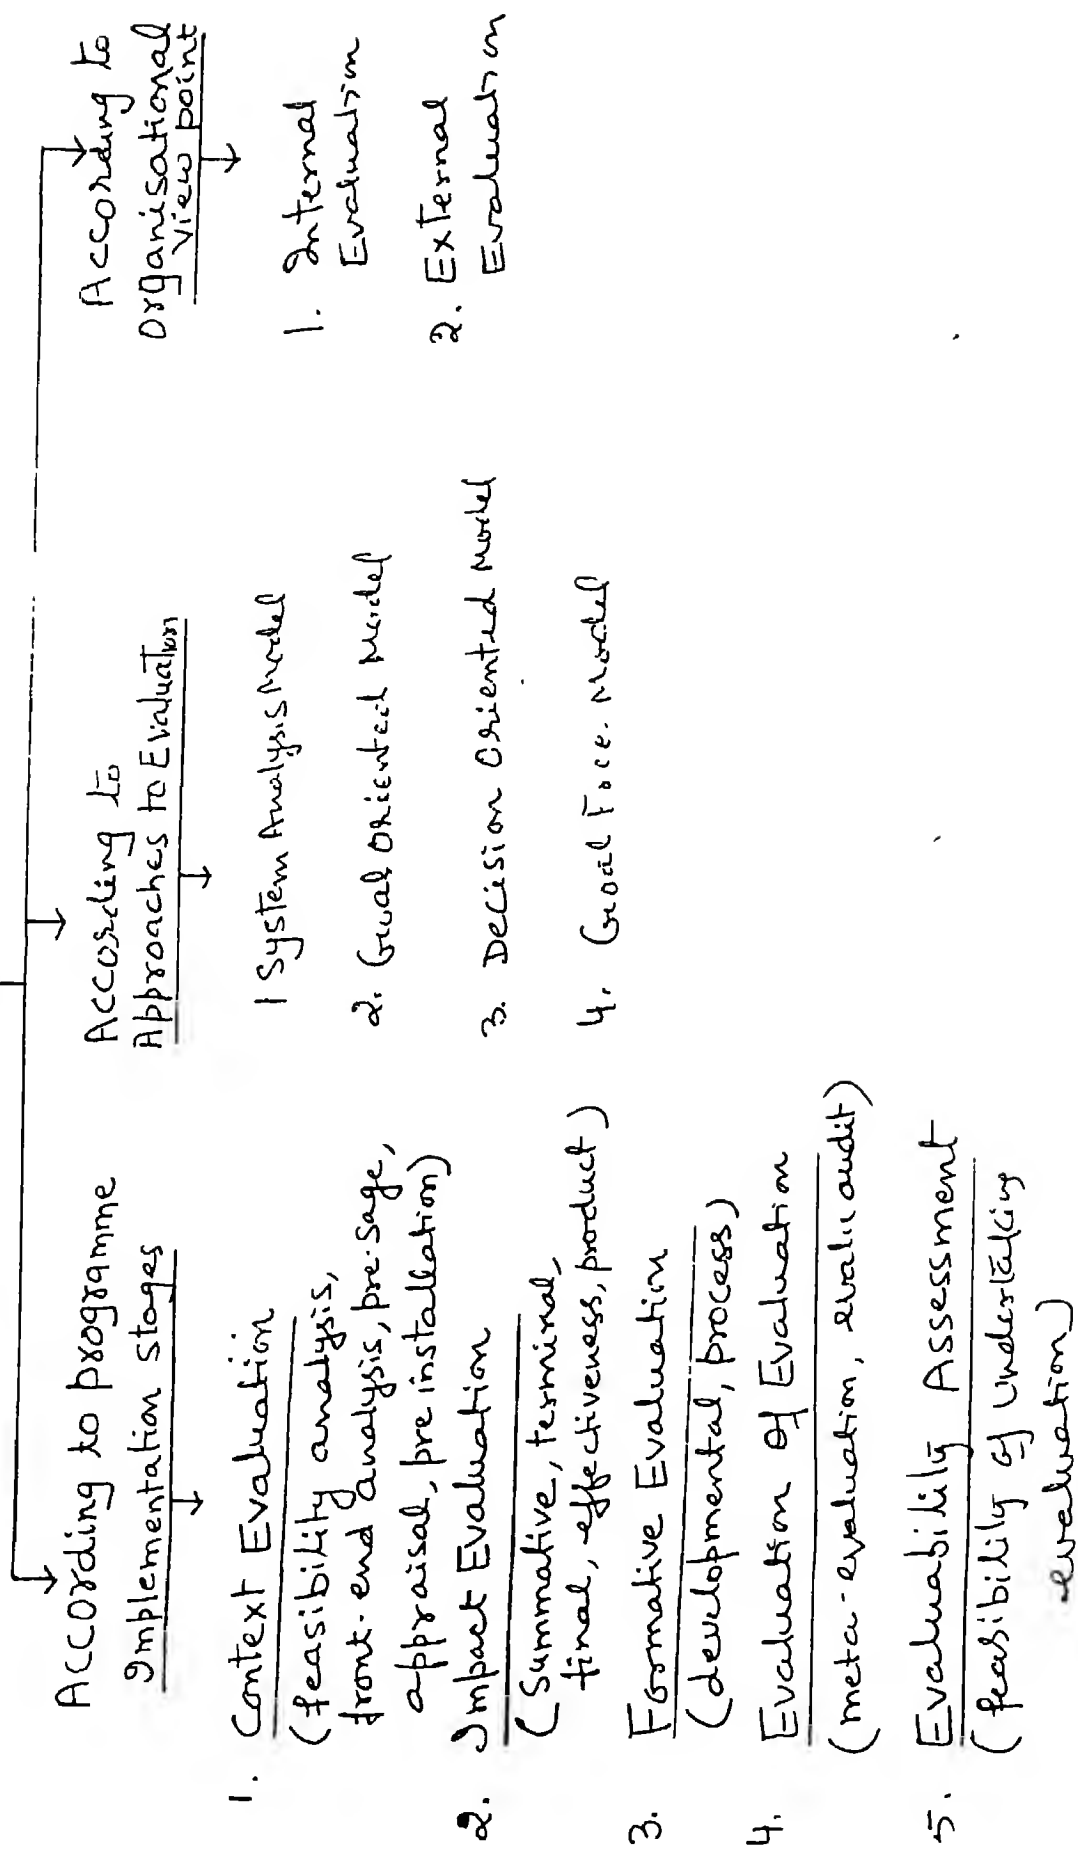 According to programme
Implementation stages
1. Context Evaluation
(feasibility analysis,
front-end analysis, pre-sage,
appraisal, pre installation)
2. Impact Evaluation
(Summative, terminal,
final, effectiveness, product)
3. Formative Evaluation
(developmental, process)
4. Evaluation Of Evaluation
(meta-evaluation, evalu audit)
5. Evaluability Assessment
(feasibility of undertaking
evaluation)
According to
Approaches to Evaluation
1 System Analysis Model
2. Goal Oriented Model
3. Decision Oriented Model
4. Goal Model
According to
organisational
view point
1. Internal
Evaluation
2. External
Evaluation